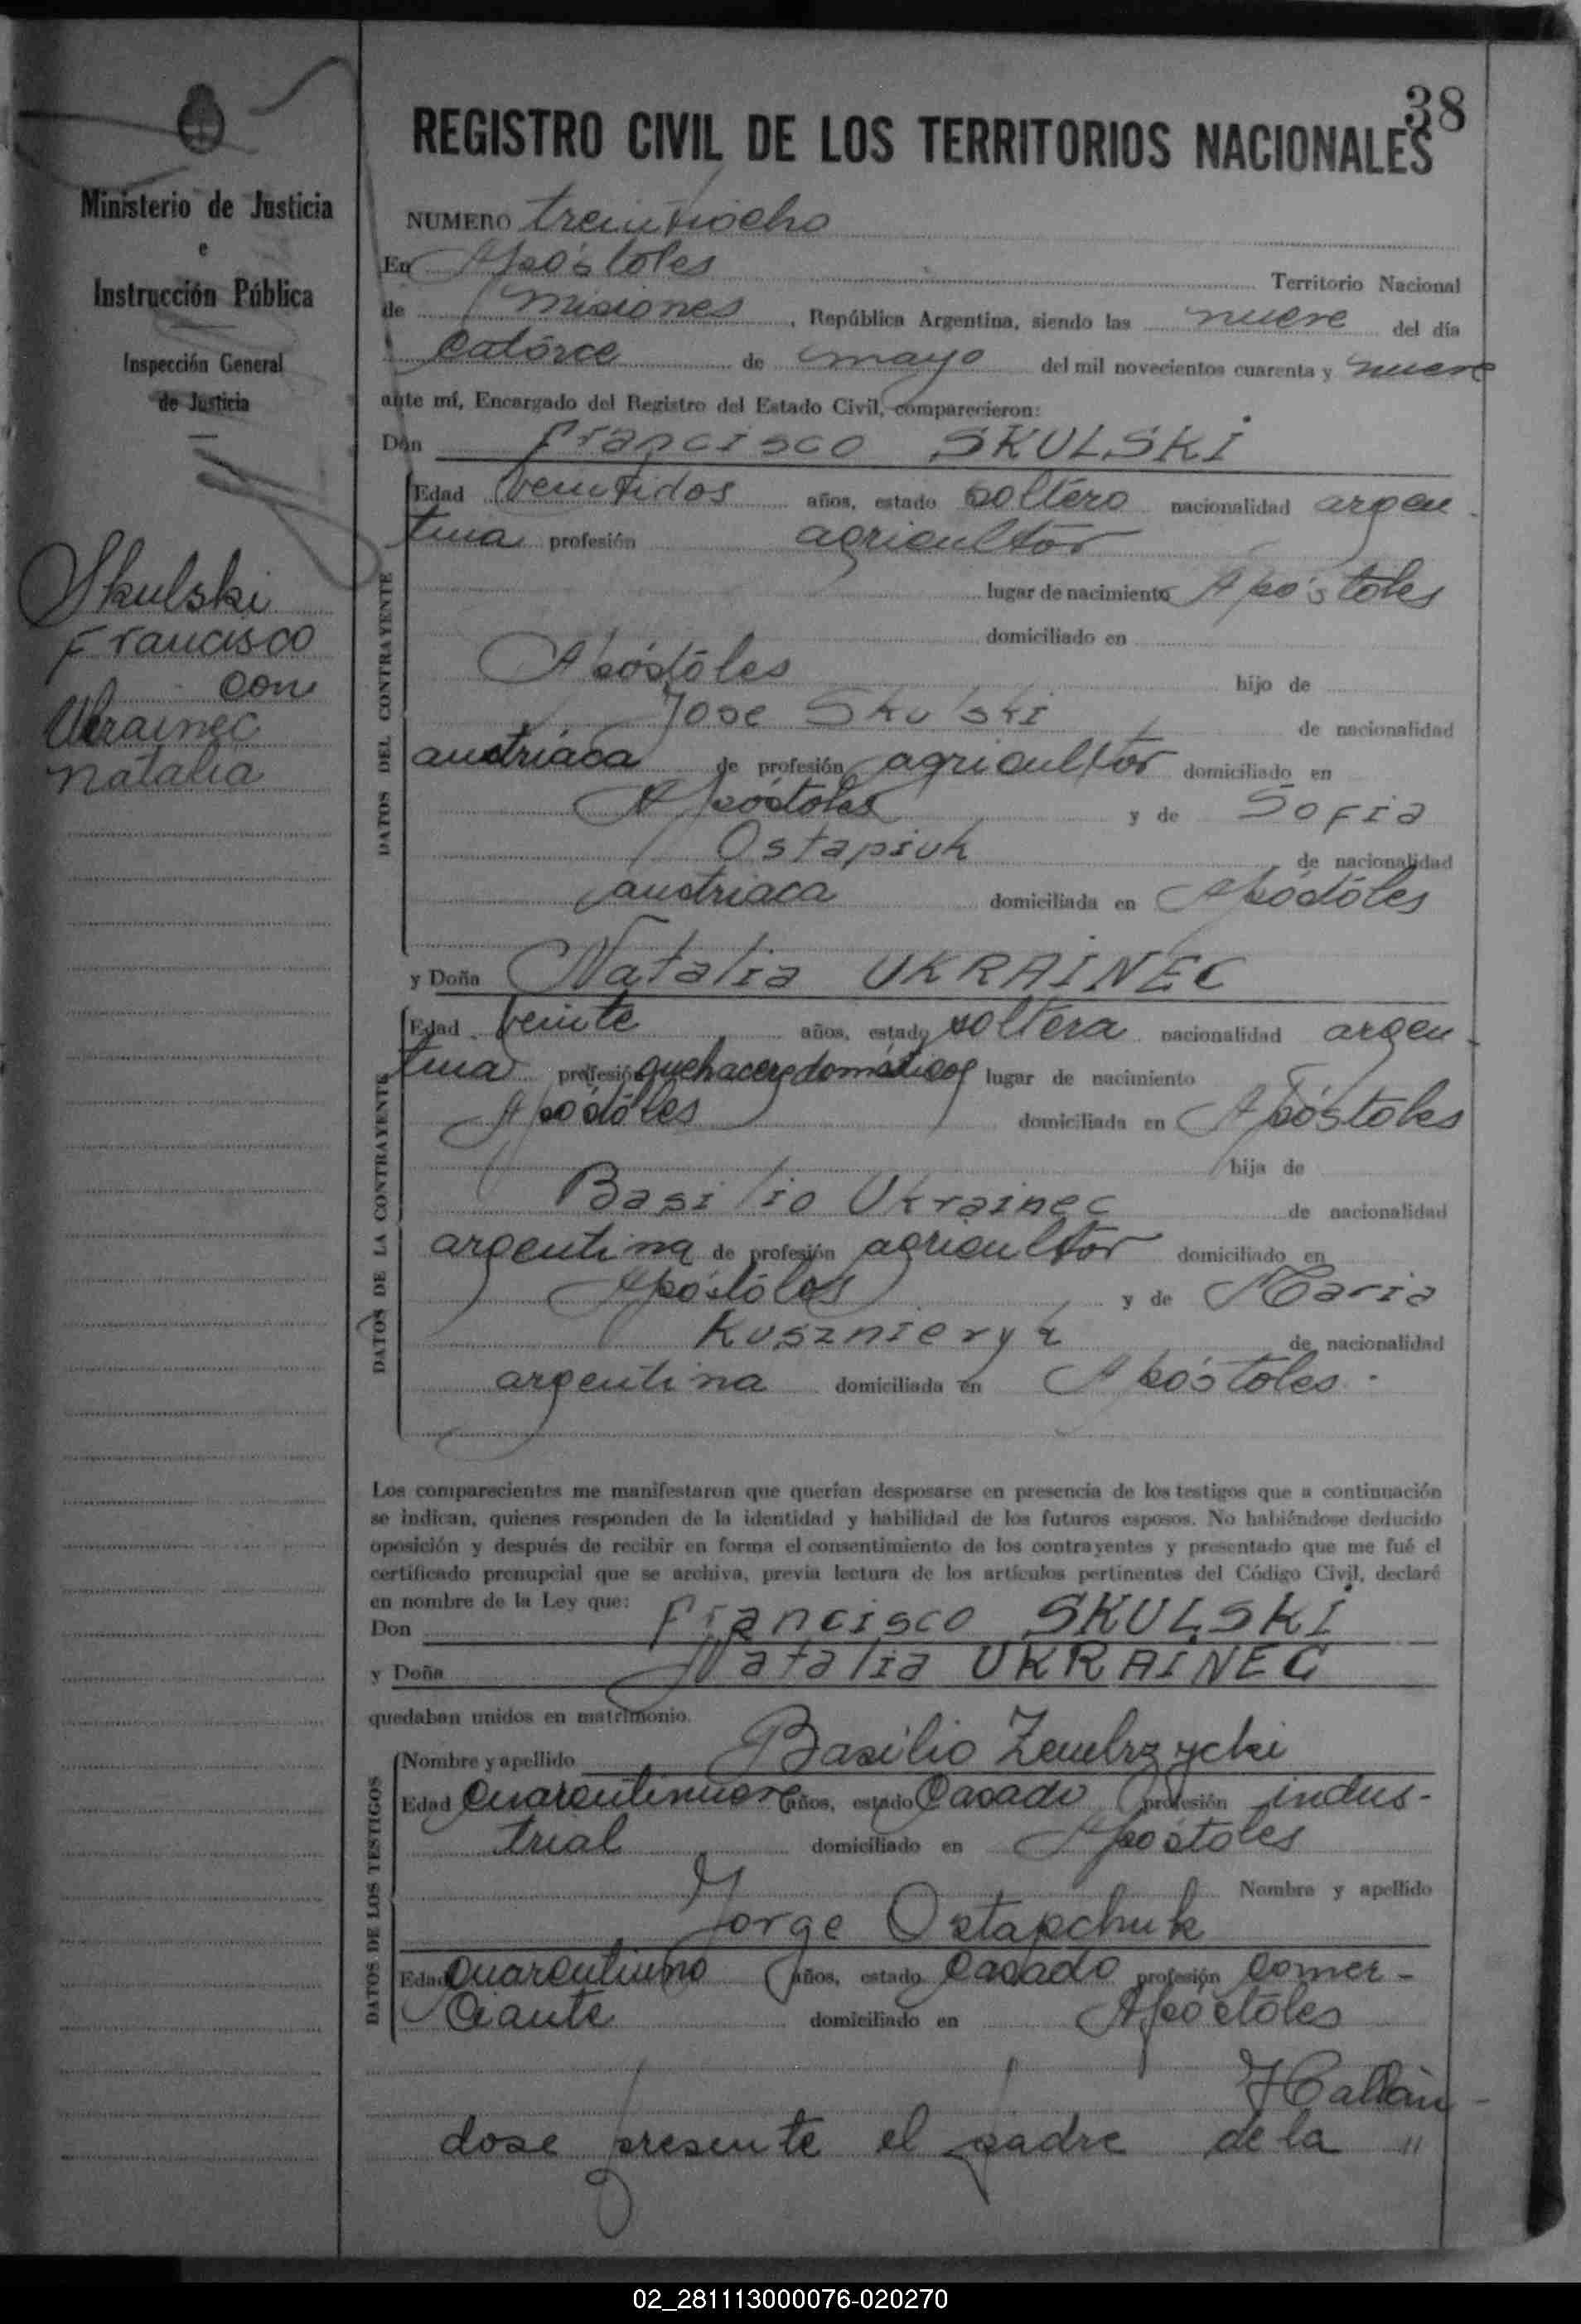 38
REGISTRO CIVIL DE LOS TERRITORIOS NACIONALES
Ministerio de Justicia
e
Instrucción Pública
Inspección General
de Justicia
Skulski
Francisco
con
Ukrainec
Natalia
NUMERO treintiocho
En Apóstoles Territorio Nacional
de Misiones, República Argentina, siendo las nueve del día
catórce de mayo del mil novecientos cuarenta y nueve
ante mí, Encargado del Registro del Estado Civil, comparecieron:
Don Francisco SKULSKI
DATOS DEL CONTRAYENTE
Edad veintidos años, estado soltero nacionalidad argen-
tina profesión agricultor
lugar de nacimiento Apóstoles
domiciliado en
Apóstoles hijo de
Jose Skulski de nacionalidad
austriaca de profesión agricultor domiciliado en
Apóstoles y de Sofia
Ostapiuk de nacionalidad
austriaca domiciliada en Apóstoles
y Doña Natalia UKRAINEC
DATOS DE LA CONTRAYENTE
Edad veinte años, estado soltera nacionalidad argen-
tina profesión quehaceres domésticos lugar de nacimiento
Apóstoles domiciliada en Apóstoles
hija de
Basilio Ukrainec de nacionalidad
argentina de profesión agricultor domiciliado en
Apóstoles y de Maria
Kusznieryk de nacionalidad
argentina domiciliada en Apóstoles.
Los comparecientes me manifestaron que querían desposarse en presencia de los testigos que a continuación
se indican, quienes responden de la identidad y habilidad de los futuros esposos. No habiéndose deducido
oposición y después de recibir en forma el consentimiento de los contrayentes y presentado que me fué el
certificado prenupcial que se archiva, previa lectura de los artículos pertinentes del Código Civil, declaré
en nombre de la Ley que:
Don Francisco SKULSKI
y Doña Natalia UKRAINEC
quedaban unidos en matrimonio.
DATOS DE LOS TESTIGOS
Nombre y apellido Basilio Zembrzycki
Edad cuarentinueve años, estado casado profesión indus-
trial domiciliado en Apóstoles
Nombre y apellido
Jorge Ostapchuk
Edad cuarentiuno años, estado casado profesión comer-
ciante domiciliado en Apóstoles
Hallán-
dose presente el padre de la "
02_281113000076-020270